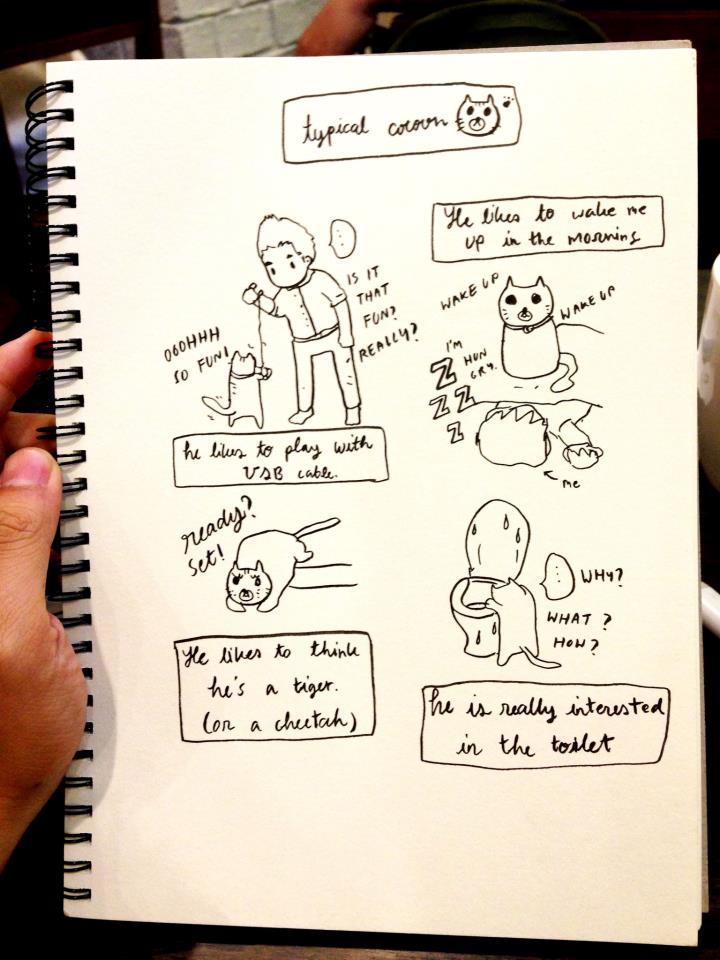 typical cocoon
...
IS IT
THAT
FUN?
REALLY?
OOOHHH
SO FUN!
he likes to play with
USB cable.
He likes to wake me
up in the morning
WAKE UP
WAKE UP
I'M
HUN
GRY.
Z
Z Z
Z
me
ready?
set!
He likes to think
he's a tiger.
(or a cheetah)
... WHY?
WHAT ?
HOW?
he is really interested
in the toilet